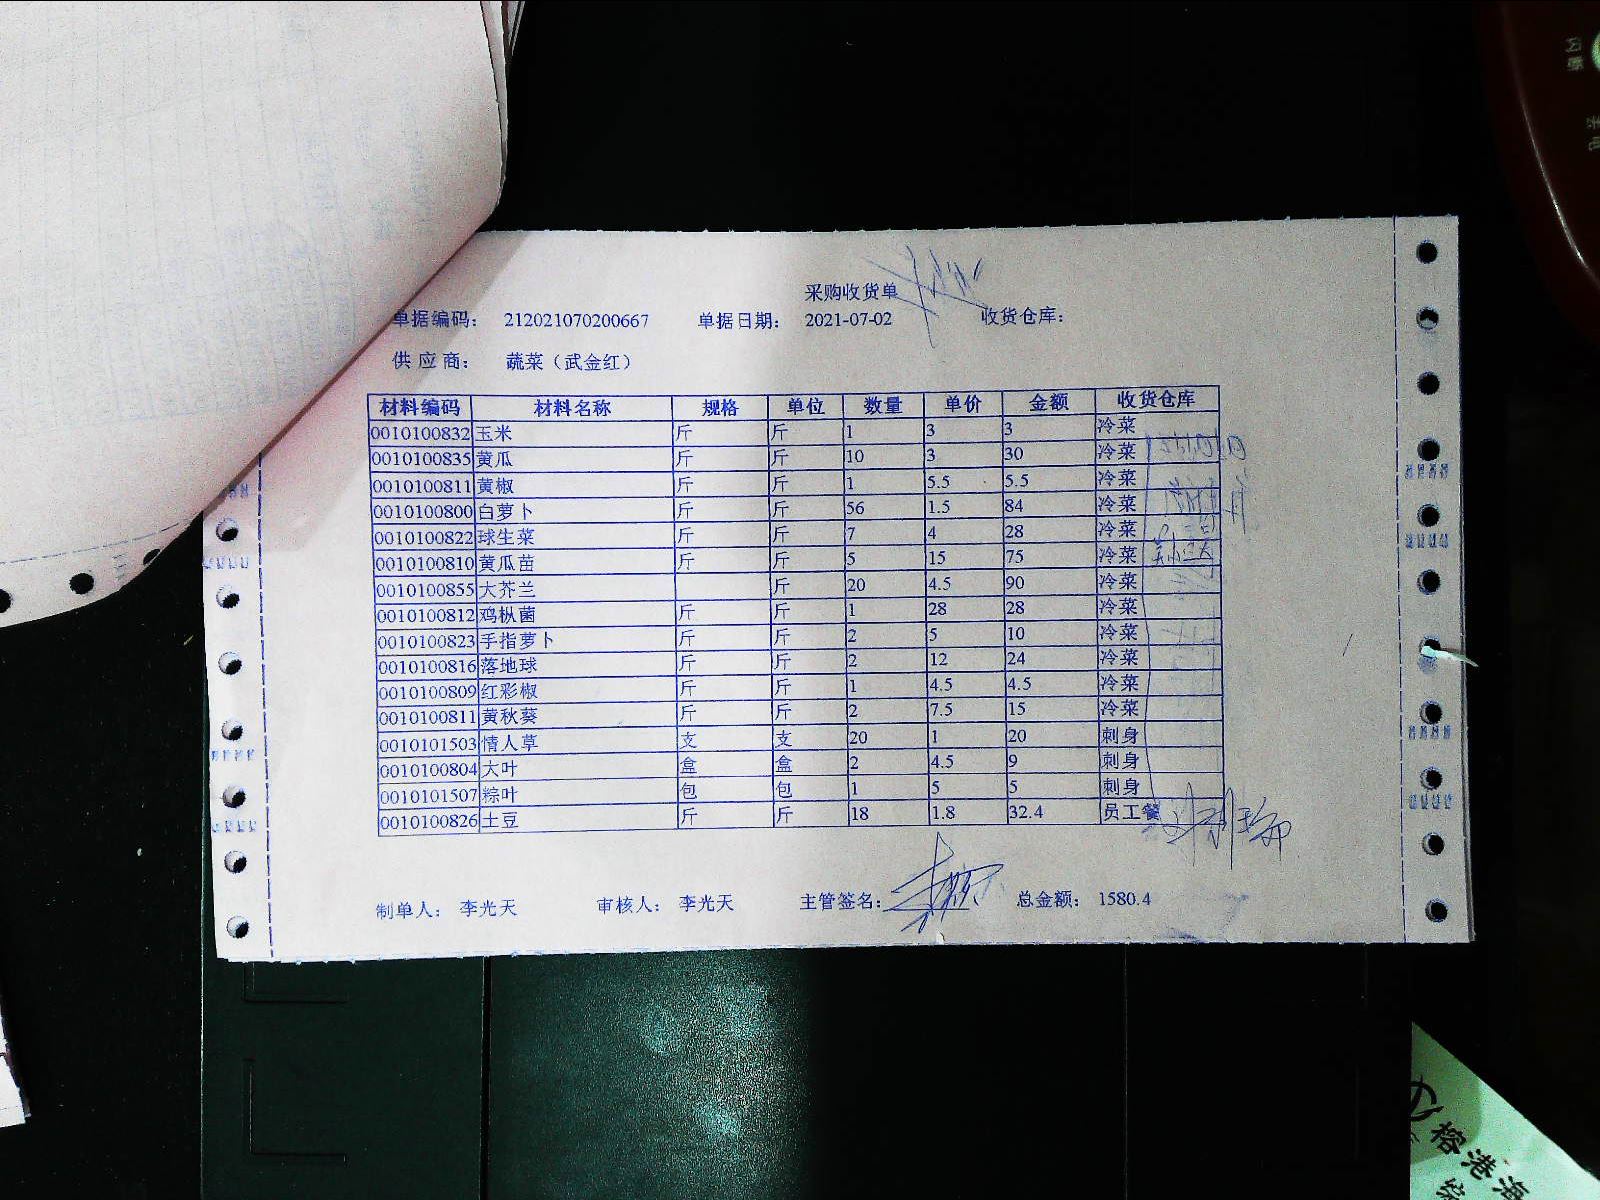 采购收货单
单据编码： 212021070200667 单据日期： 2021-07-02 收货仓库：
供 应 商： 蔬菜（武金红）
材料编码 材料名称 规格 单位 数量 单价 金额 收货仓库
0010100832 玉米 斤 斤 1 3 3 冷菜
0010100835 黄瓜 斤 斤 10 3 30 冷菜
0010100811 黄椒 斤 斤 1 5.5 5.5 冷菜
0010100800 白萝卜 斤 斤 56 1.5 84 冷菜
0010100822 球生菜 斤 斤 7 4 28 冷菜
0010100810 黄瓜苗 斤 斤 5 15 75 冷菜
0010100855 大芥兰 斤 20 4.5 90 冷菜
0010100812 鸡枞菌 斤 斤 1 28 28 冷菜
0010100823 手指萝卜 斤 斤 2 5 10 冷菜
0010100816 落地球 斤 斤 2 12 24 冷菜
0010100809 红彩椒 斤 斤 1 4.5 4.5 冷菜
0010100811 黄秋葵 斤 斤 2 7.5 15 冷菜
0010101503 情人草 支 支 20 1 20 刺身
0010100804 大叶 盒 盒 2 4.5 9 刺身
0010101507 粽叶 包 包 1 5 5 刺身
0010100826 土豆 斤 斤 18 1.8 32.4 员工餐
制单人： 李光天 审核人： 李光天 主管签名： 总金额： 1580.4
榕港海